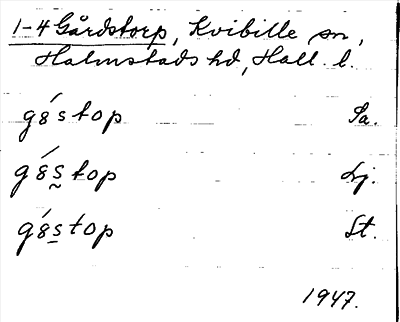 1-4 Gårdstorp, Kvibille sn,
Halmstads hd, Hall. l.
gó8stop Sa.
gó8s̰top Lj.
gó8s̠top St.
1947.